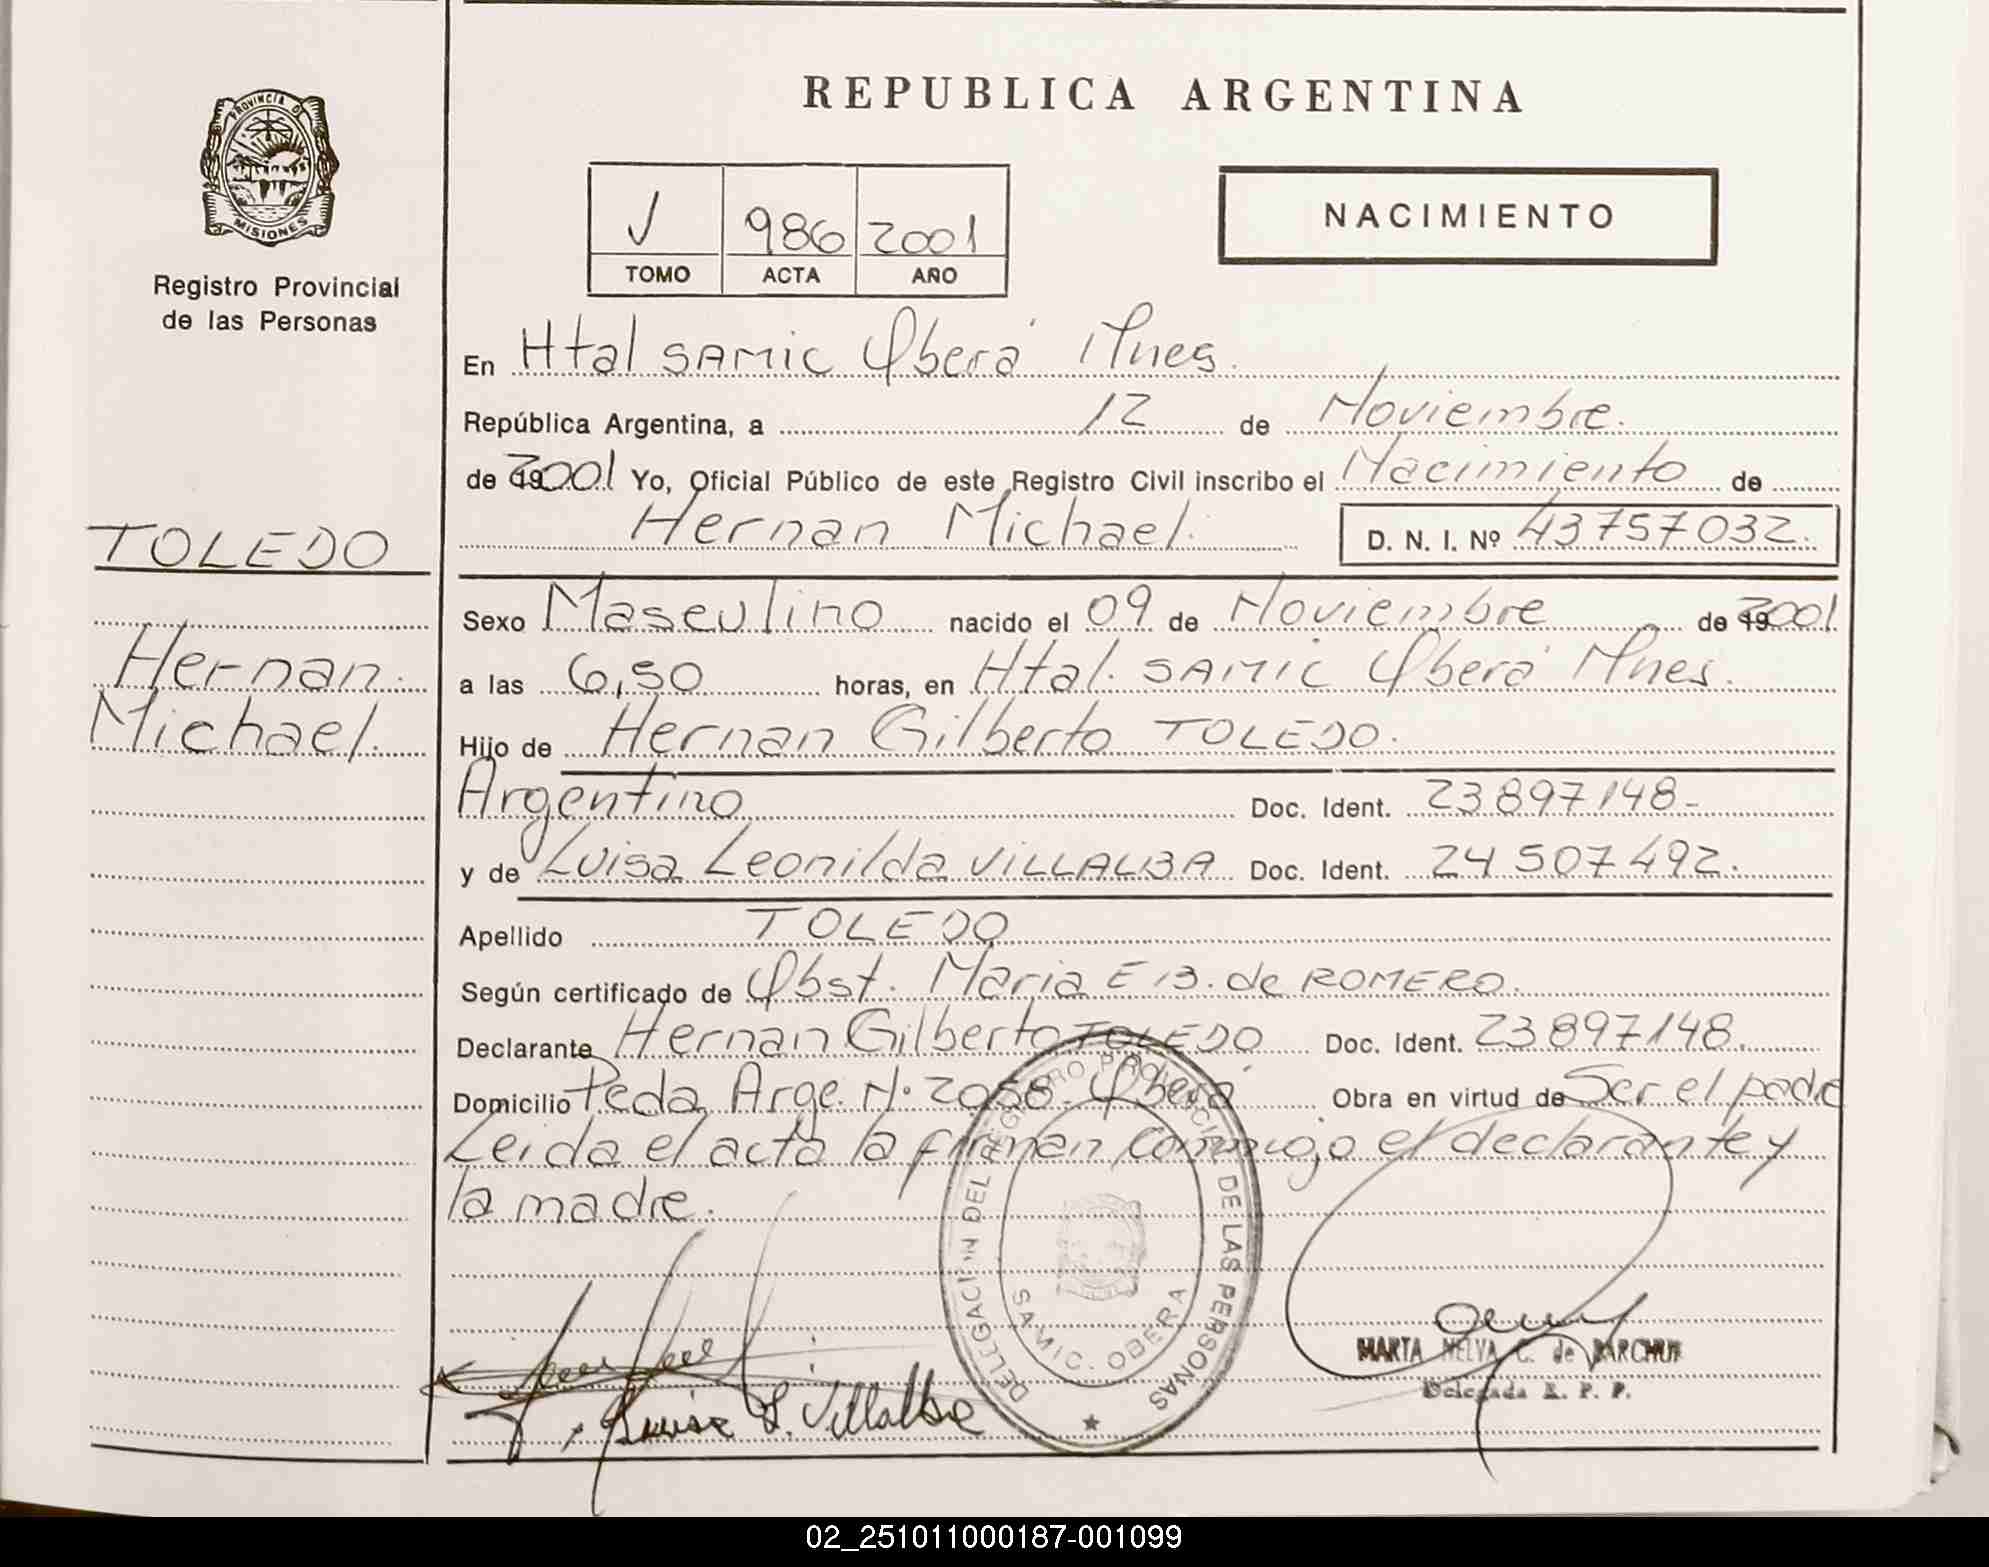 REPUBLICA ARGENTINA
PROVINCIA D
MISIONES
Registro Provincial
de las Personas
V 986 2001
TOMO ACTA AÑO
NACIMIENTO
En Htal SAMIC Oberá Mnes.
República Argentina, a 12 de Noviembre.
de 2001 Yo, Oficial Público de este Registro Civil inscribo el Nacimiento de
Hernan Michael. D. N. I. Nº 43757032.
TOLEDO
Hernan
Michael.
Sexo Masculino nacido el 09 de Noviembre de 2001
a las 6,50 horas, en Htal. SAMIC Oberá Mnes.
Hijo de Hernan Gilberto TOLEDO.
Argentino Doc. Ident. 23897148-
y de Luisa Leonilda VILLALBA Doc. Ident. 24507492.
Apellido TOLEDO
Según certificado de Obst. Maria E B. de ROMERO.
Declarante Hernan Gilberto TOLEDO Doc. Ident. 23897148.
Domicilio Peda. Arge. N. 2058. Oberá Obra en virtud de Ser el padre
Leida el acta la firman conmigo el declarante y
la madre.
DELEGACION DEL REGISTRO PROVINCIAL DE LAS PERSONAS
SAMIC. OBERA
Luisa L. Villalba
MARTA NELVA C. de
Delegada R. P. P.
02_251011000187-001099